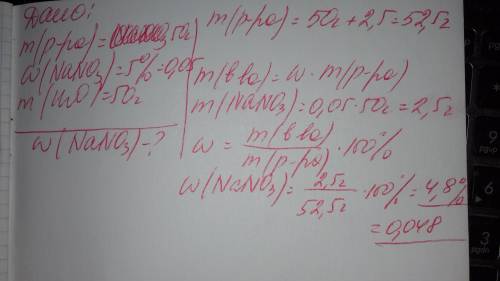 Дано:
m(р-ра) = 50г
ω(NaNO3) = 5% = 0,05
m(H2O) = 50г
ω(NaNO3) - ?
m(р-ра) = 50г + 2,5 = 52,5г
m(в ва) = ω · m(р-ра)
m(NaNO3) = 0,05 · 50г = 2,5г
ω = m(в ва) / m(р-ра) · 100%
ω(NaNO3) = 2,5г / 52,5г · 100% = 4,8%
= 0,048